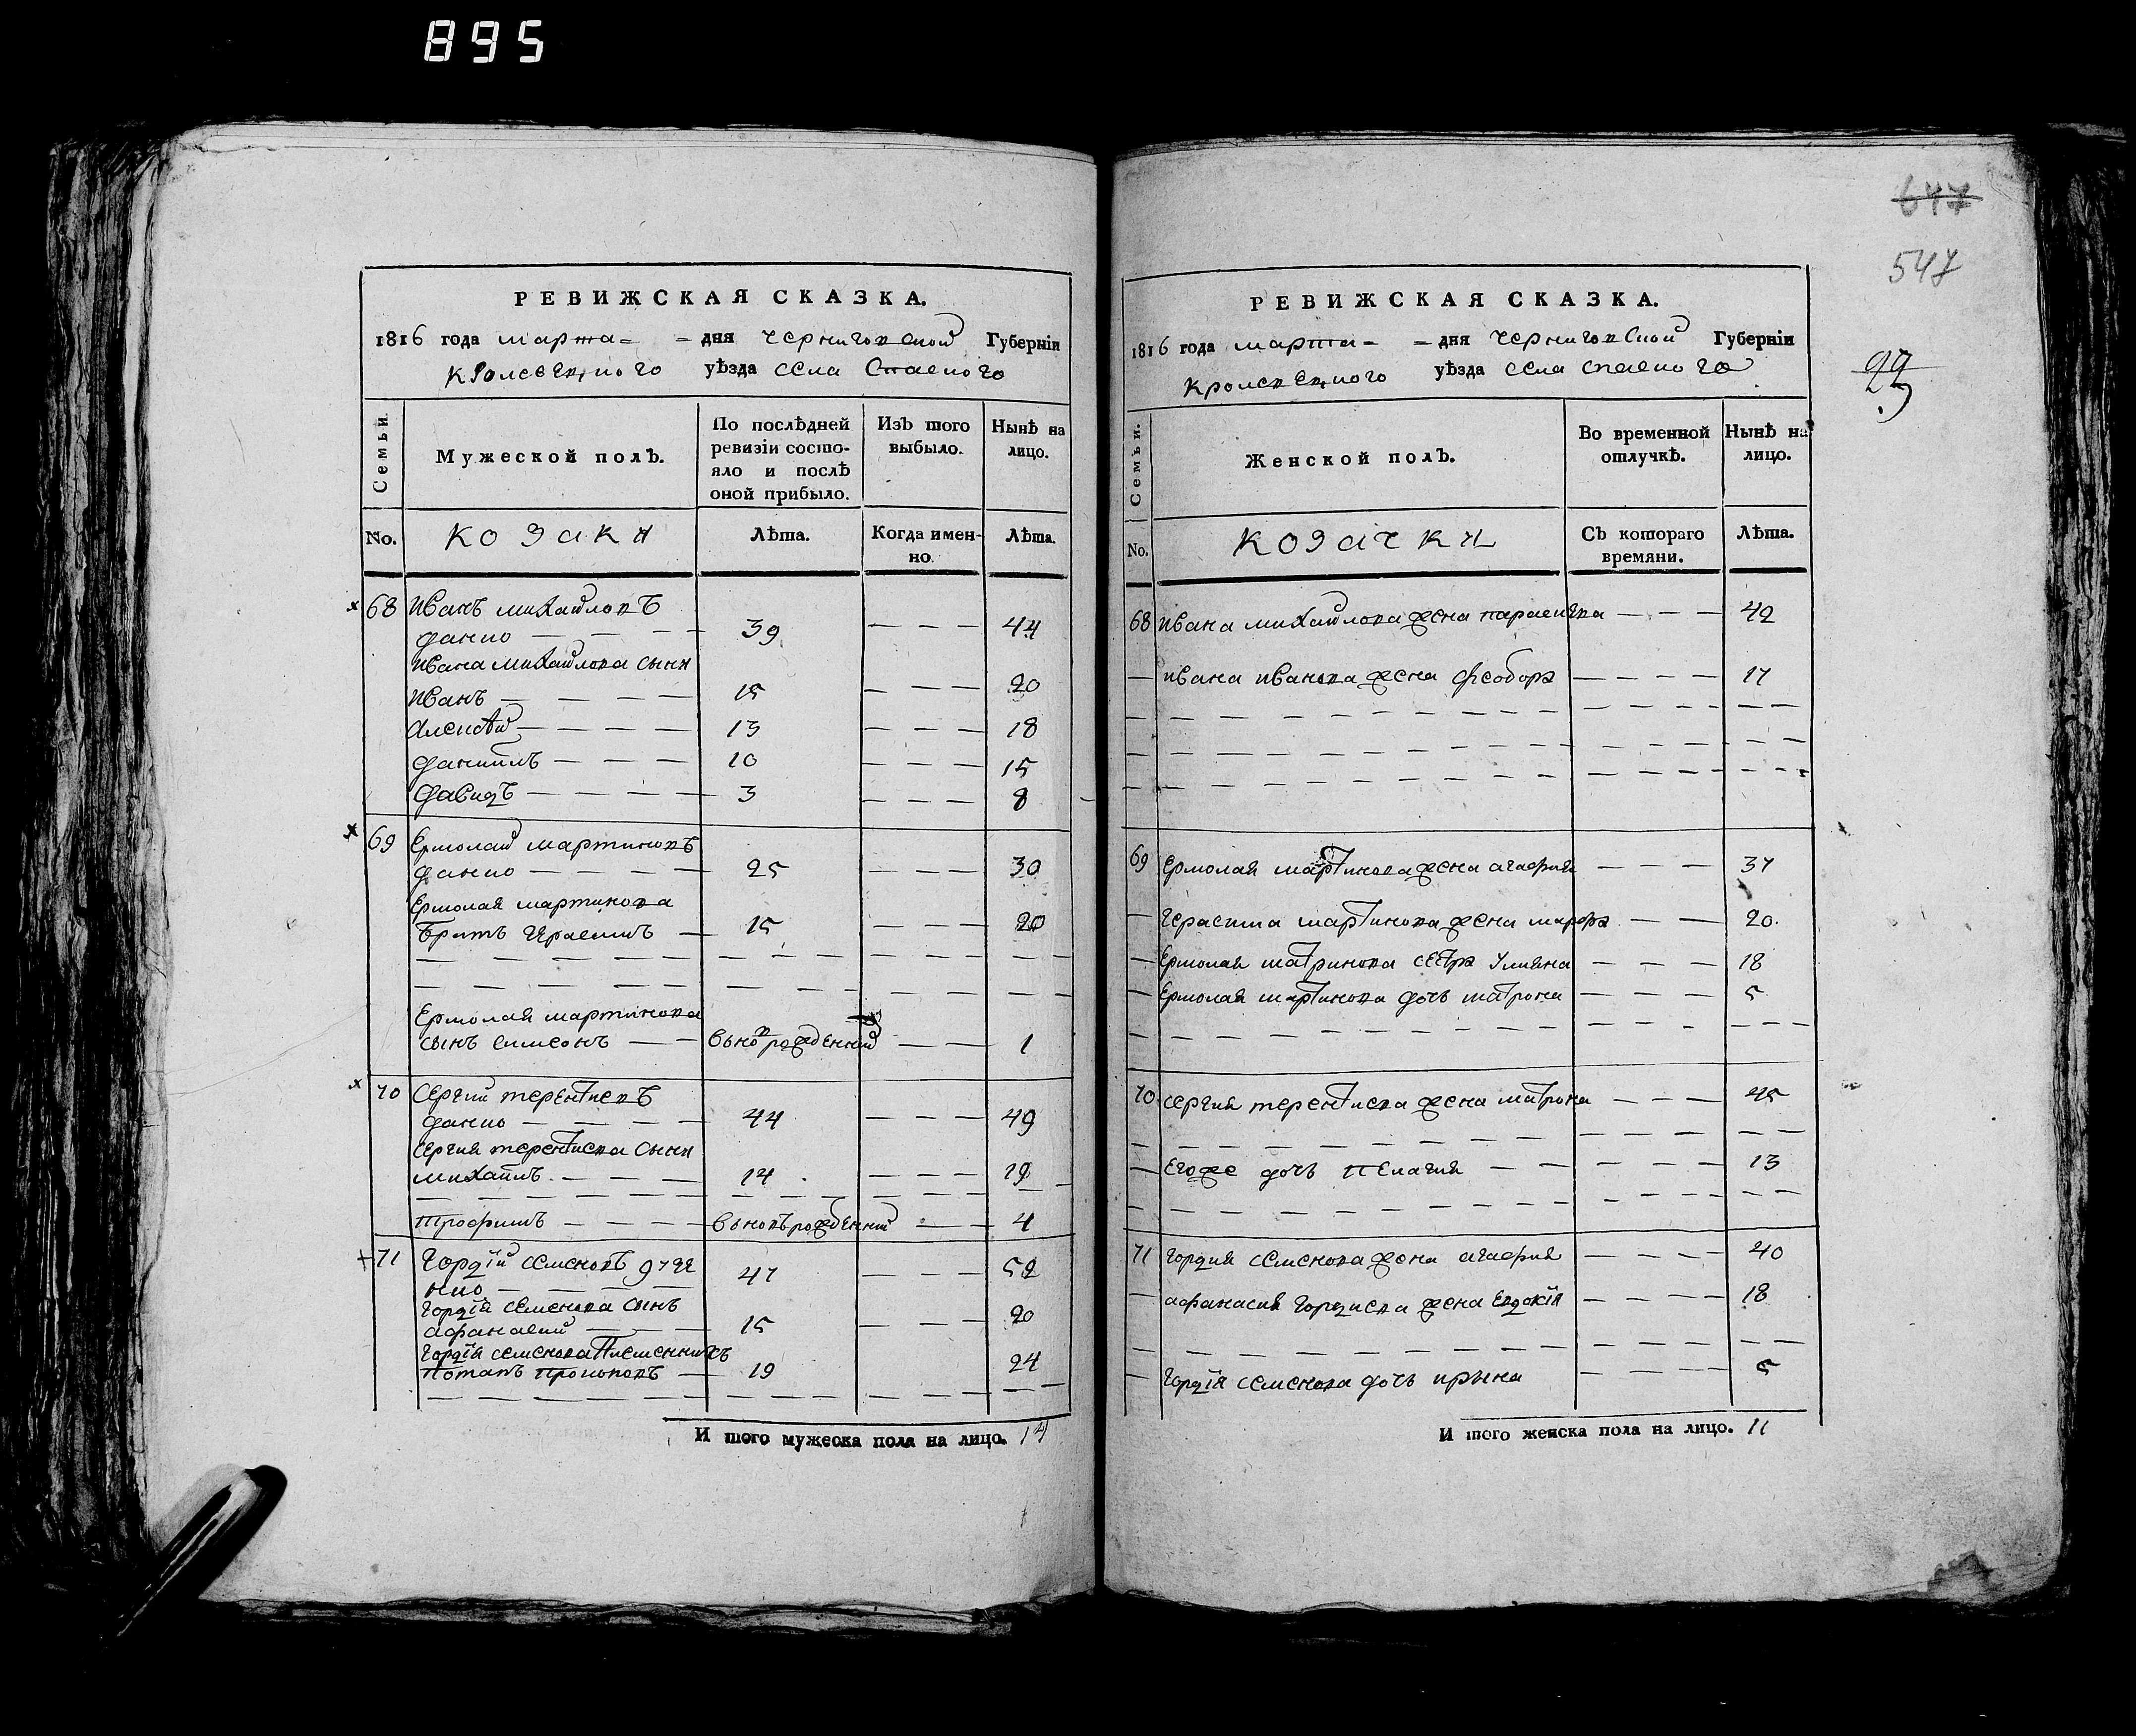 895
647
547
23
РЕВИЖСКАЯ СКАЗКА.
1816 года марта = = дня черниговской Губерніи
кролевецкого уѣзда села Спаского
Семьи.
Мужеской полъ.
По послѣдней ревизіи состояло и послѣ оной прибыло.
Изъ того выбыло.
Нынѣ на лицо.
No. козаки Лѣта. Когда именно. Лѣта.
68 иванъ михайловъ
39 44
ивана михайлова сыни
иванъ 15 20
алексѣй 13 18
даниилъ 10 15
давидъ 3 8
69 Ермолай мартиновъ
25 30
Ермолая мартинова
братъ герасимъ 15 20
Ермолая мартинова
сынъ симеонъ вновърожденний 1
70 Сергий терентиевъ
44 49
сергия терентиева сыни
михаилъ 14 19
трофимъ вновърожденний 4
71 Гордій семеновъ
47 52
гордія семенова сынъ
афанасий 15 20
гордія семенова племенникъ
потапъ прокоповъ 19 24
И того мужеска пола на лицо. 14
РЕВИЖСКАЯ СКАЗКА.
1816 года марта = = дня черниговской Губерніи
кролевецкого уѣзда села спаского
Семьи.
Женской полъ.
Во временной отлучкѣ.
Нынѣ на лицо.
No. козачки Съ котораго времяни. Лѣта.
68 ивана михайлова жена параскева 42
ивана иванова жена феодора 17
69 Ермолая мартинова жена агафия 37
герасима мартинова жена марфа 20
Ермолая матринова сестра улияна 18
Ермолая мартинова дочь матрона 5
70 сергия терентиева жена матрона 45
Егоже дочь пелагия 13
71 гордия семенова жена агафия 40
афанасия гордиева жена Евдокія 18
гордія семенова дочь ирына 5
И того женска пола на лицо. 11